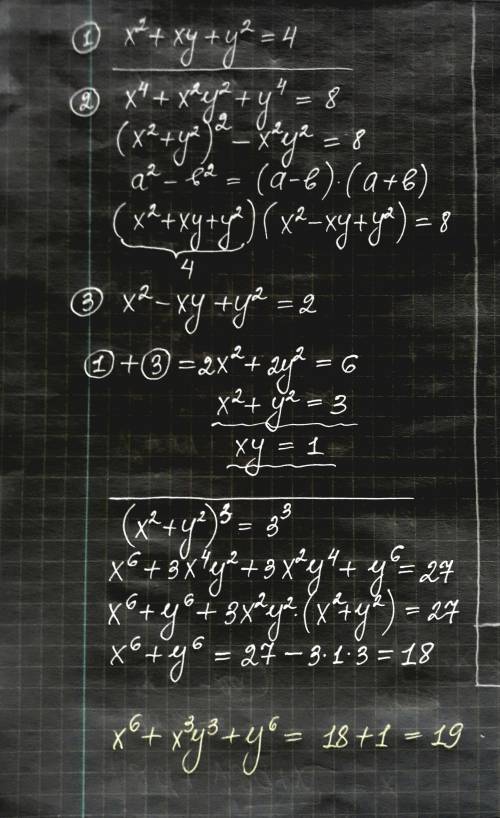 ① x² + xy + y² = 4
② x⁴ + x²y² + y⁴ = 8
(x² + y²)² − x²y² = 8
a² − в² = (a−в)·(a+в)
(x² + xy + y²)(x² − xy + y²) = 8
4
③ x² − xy + y² = 2
① + ③ = 2x² + 2y² = 6
x² + y² = 3
xy = 1
(x² + y²)³ = 3³
x⁶ + 3x⁴y² + 3x²y⁴ + y⁶ = 27
x⁶ + y⁶ + 3x²y²·(x² + y²) = 27
x⁶ + y⁶ = 27 − 3·1·3 = 18
x⁶ + x³y³ + y⁶ = 18 + 1 = 19